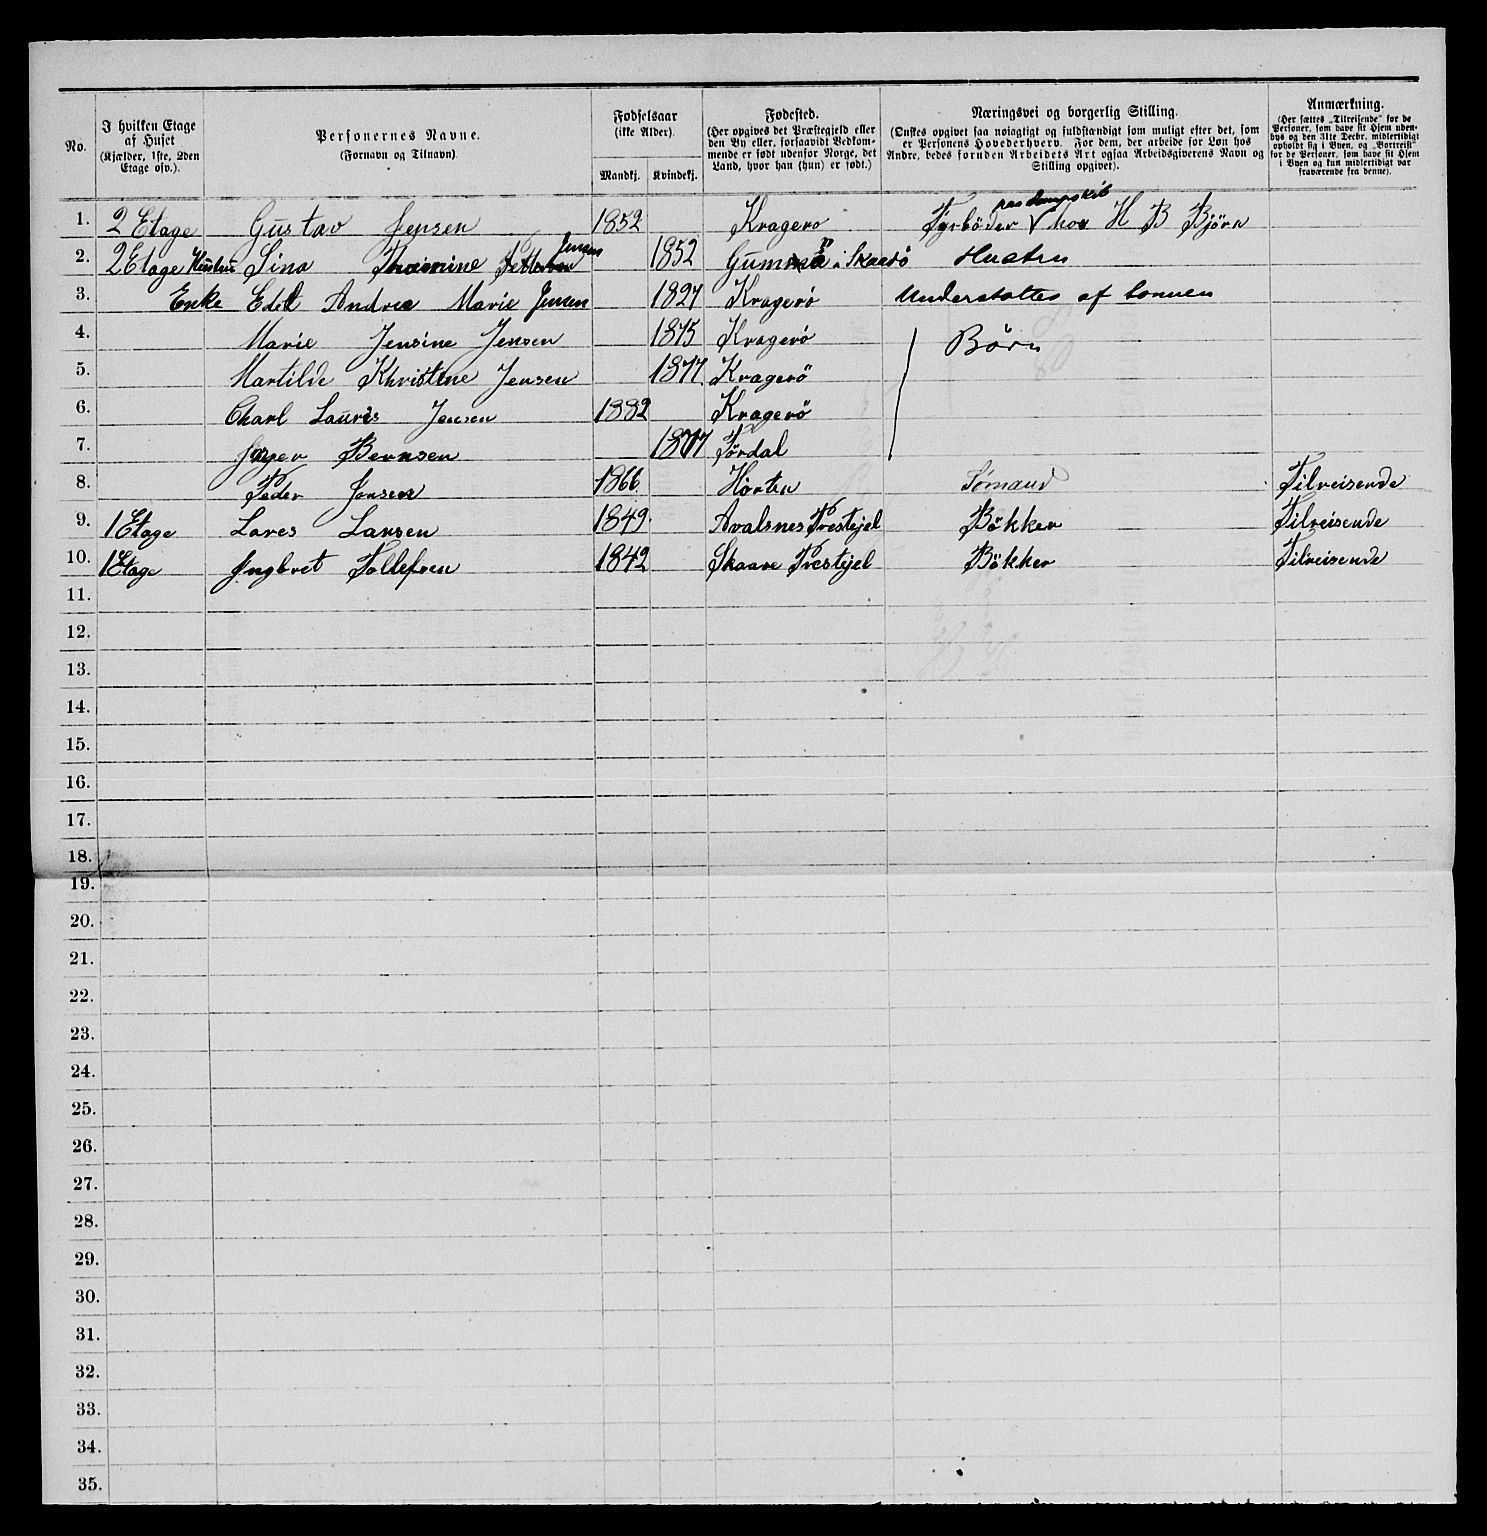 No.
I hvilken Etage af Huset (Kjælder, 1ste, 2den Etage osv.).
Personernes Navne. (Fornavn og Tilnavn).
Fødselsaar (ikke Alder).
Mandkj. Kvindekj.
Fødested. (Her opgives det Præstegjeld eller den By eller, forsaavidt Vedkommende er født udenfor Norge, det Land, hvor han (hun) er født.)
Næringsvei og borgerlig Stilling. (Ønskes opgivet saa nøiagtigt og fuldstændigt som muligt efter det, som er Personens Hovederhverv. For dem, der arbeide for Løn hos Andre, bedes foruden Arbeidets Art ogsaa Arbeidsgiverens Navn og Stilling opgivet).
Anmærkning. (Her sættes „Tilreisende“ for de Personer, som have sit Hjem udenbys og den 31te Decbr. midlertidigt opholdt sig i Byen, og „Bortreist“ for de Personer, som have sit Hjem i Byen og kun midlertidigt var fraværende fra denne).
1. 2 Etage Gustav Jensen 1852 Kragerø Fyrbøder paa dampskib hos H B Bjørn
2. 2 Etage Hustru Sina Jensen 1852 i Skaatø Hustru
3. Enke Andrea Marie Jensen 1827 Kragerö Understøttes af sønnen
4. Marie Jensine Jensen 1875 Kragerö Børn
5. Martilde Khristine Jensen 1877 Kragerö
6. Charl Lauris Jensen 1882 Kragerö
7. Bernsen 1877 Førdal
8. Peder Jonsen 1866 Horten Sømand Tilreisende
9. 1 Etage Lares Larsen 1849 Avalsnes Prestejel Bökker Tilreisende
10. 1 Etage Ingbret Tollefsen 1842 Skaare Prestejel Bökker Tilreisende
11.
12.
13.
14.
15.
16.
17.
18.
19.
20.
21.
22.
23.
24.
25.
26.
27.
28.
29.
30.
31.
32.
33.
34.
35.